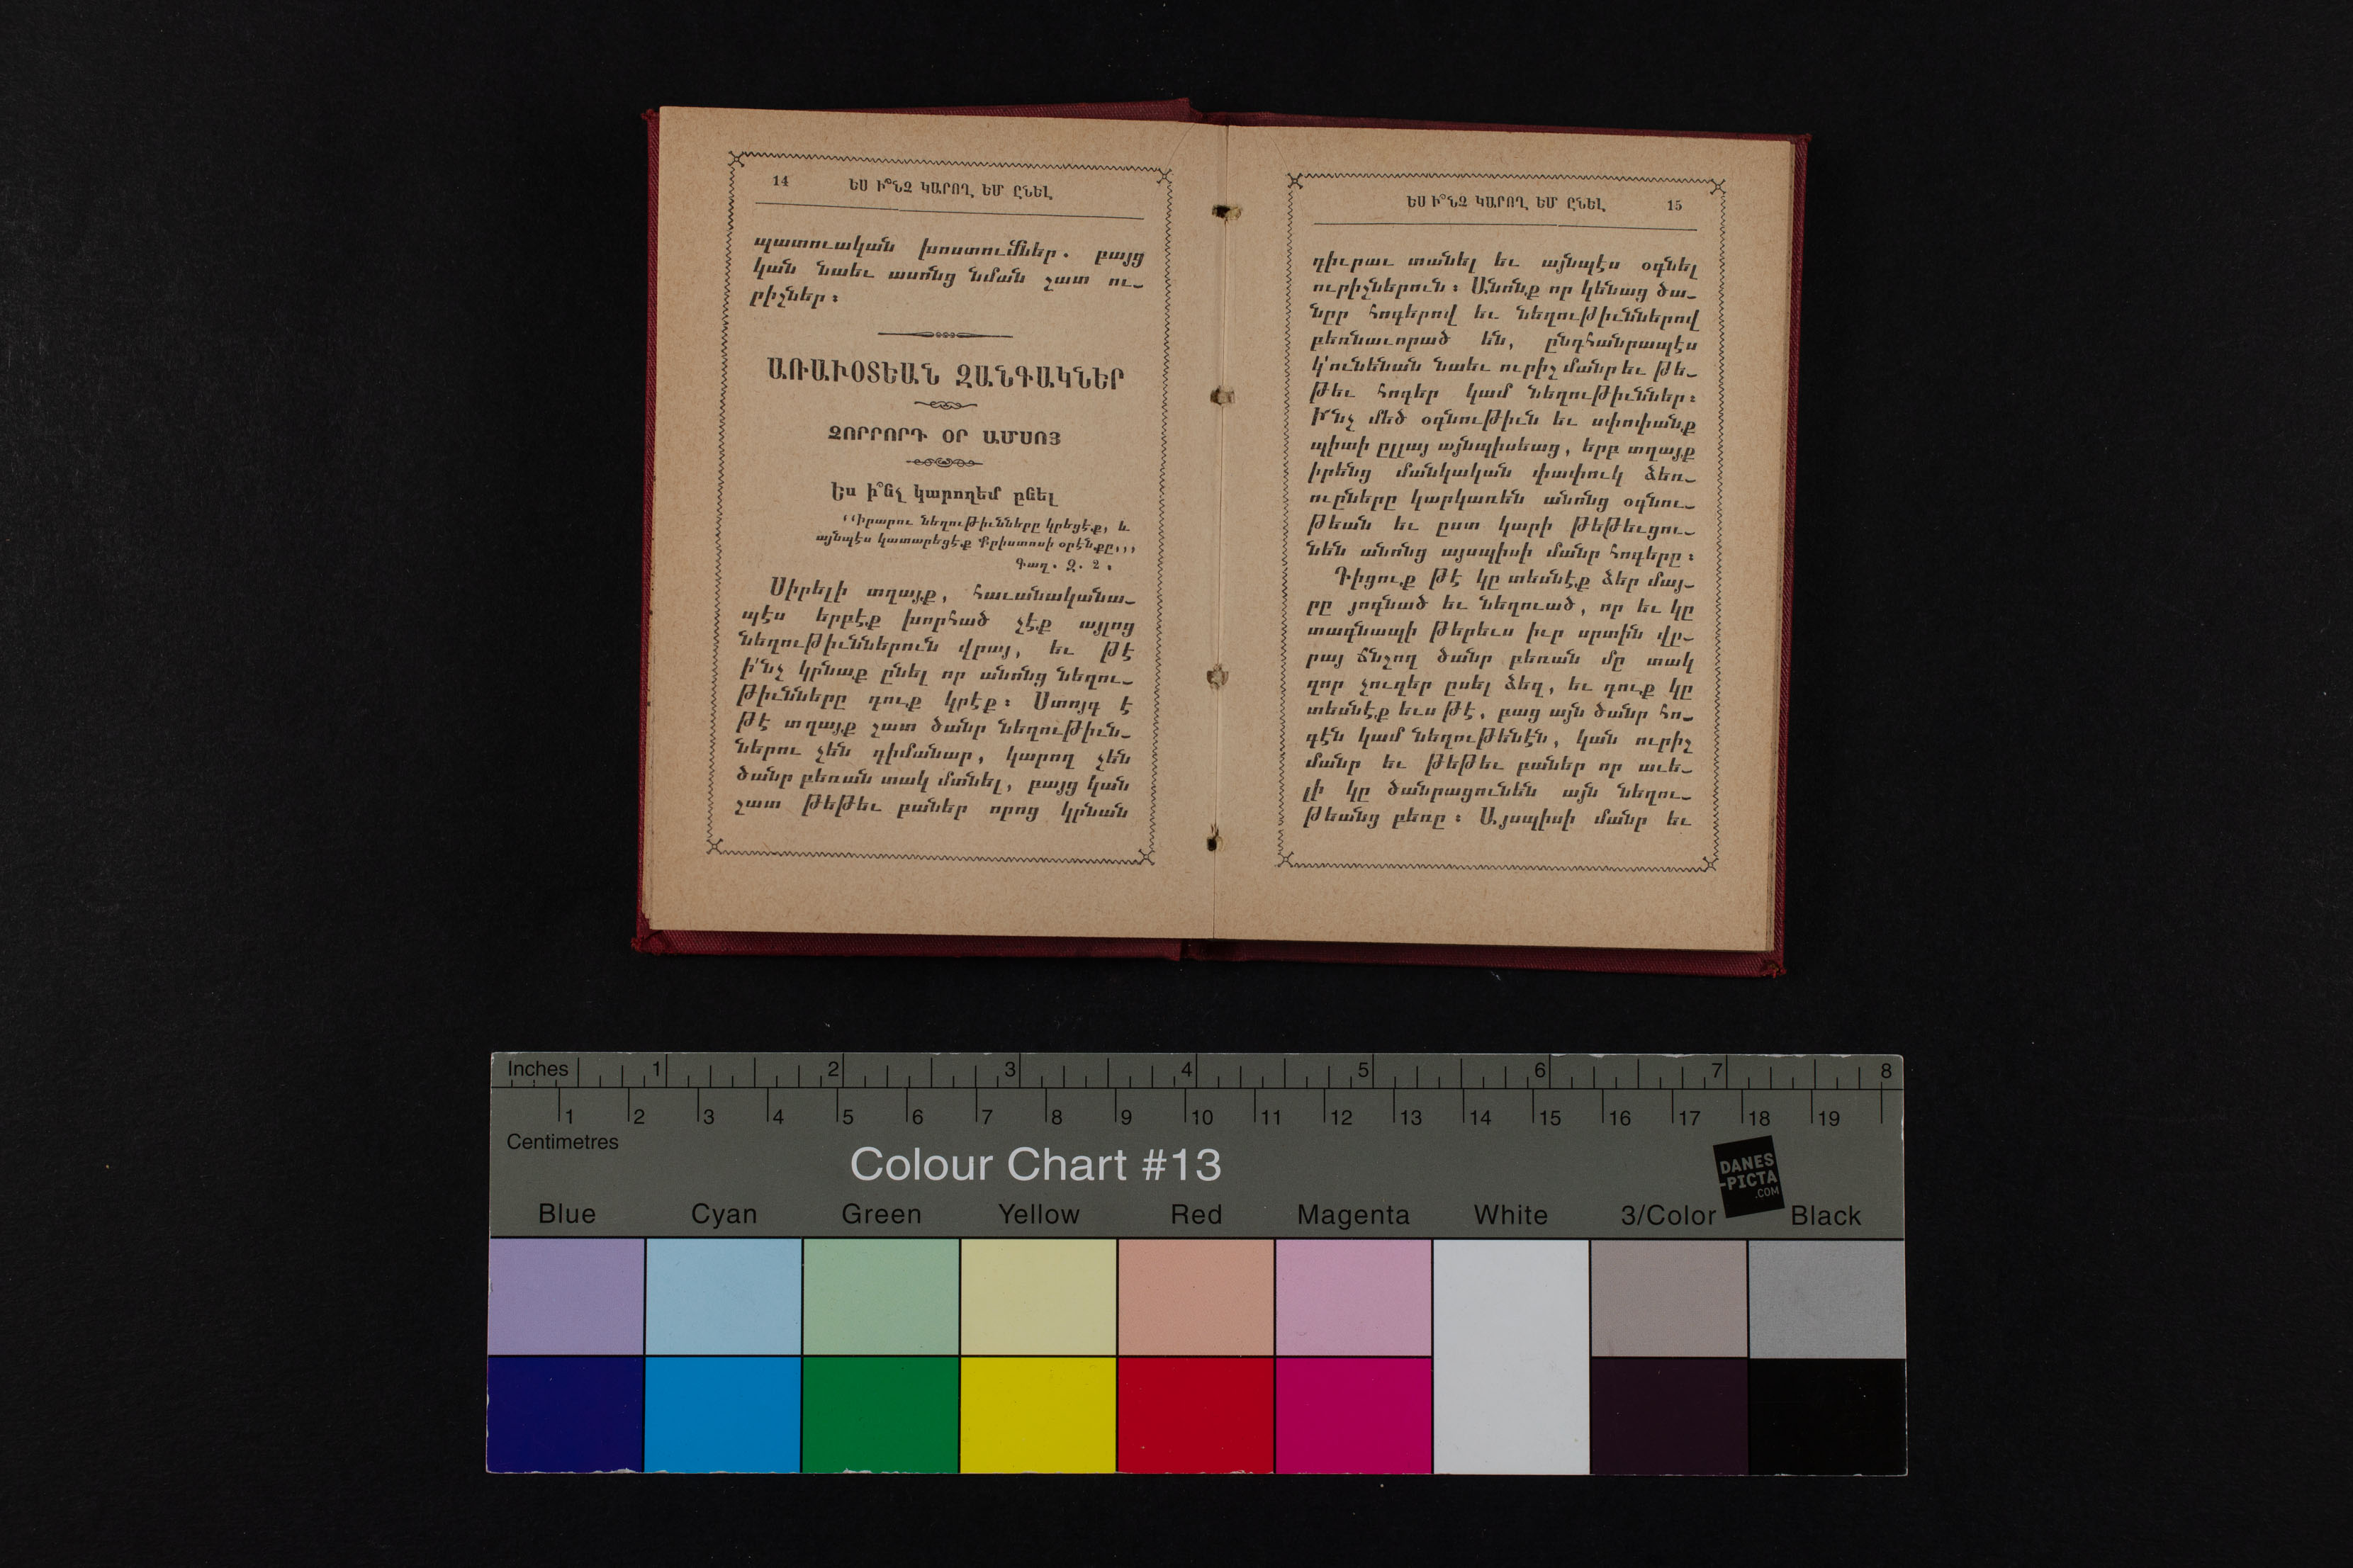 14 ԵՍ Ի՞ՆՉ ԿԱՐՈՂ ԵՄ ԸՆԵԼ
պատուական խոստումներ. բայց
կան նաեւ ասոնց նման շատ ու-
րիշներ:
ԱՌԱՒՕՏԵԱՆ ԶԱՆԳԱԿՆԵՐ
ՉՈՐՐՈՐԴ ՕՐ ԱՄՍՈՅ
Ես ի՞նչ կարողեմ ընել
‘‘Իրարու նեղութիւնները կրեցէք, և
այնպէս կատարեցէք Քրիստոսի օրէնքը,,,
Գաղ. Զ. 2.
Սիրելի տղայք, հաւանականա-
պէս երբէք խորհած չէք այլոց
նեղութիւններուն վրայ, եւ թէ
ի՛նչ կրնաք ընել որ անոնց նեղու-
թիւնները դուք կրէք: Ստոյգ է
թէ տղայք շատ ծանր նեղութիւն-
ներու չեն դիմանար, կարող չեն
ծանր բեռան տակ մտնել, բայց կան
շատ թեթեւ բաներ որոց կրնան
ԵՍ Ի՞ՆՉ ԿԱՐՈՂ ԵՄ ԸՆԵԼ 15
դիւրաւ տանել եւ այնպէս օգնել
ուրիշներուն: Անոնք որ կենաց ծա-
նըր հոգերով եւ նեղութիւններով
բեռնաւորած են, ընդհանրապէս
կ'ունենան նաեւ ուրիշ մանր եւ թե-
թեւ հոգեր կամ նեղութիւններ:
Ի՛նչ մեծ օգնութիւն եւ սփոփանք
պիտի ըլլայ այնպիսեաց, երբ տղայք
իրենց մանկական փափուկ ձեռ-
ուըները կարկառեն անոնց օգնու-
թեան եւ ըստ կարի թեթեւցու-
նեն անոնց այսպիսի մանր հոգերը:
Դիցուք թէ կը տեսնէք ձեր մայ-
րը յոգնած եւ նեղուած, որ եւ կը
տագնապի թերեւս իւր սրտին վը-
րայ ճնշող ծանր բեռան մը տակ
զոր չուզեր ըսել ձեզ, եւ դուք կը
տեսնէք եւս թէ, բաց այն ծանր հո-
գէն կամ նեղութենէն, կան ուրիշ
մանր եւ թեթեւ բաներ որ աւե-
լի կը ծանրացունեն այն նեղու-
թեանց բեռը: Այսպիսի մանր եւ
Inches 1 2 3 4 5 6 7 8
1 2 3 4 5 6 7 8 9 10 11 12 13 14 15 16 17 18 19
Centimetres
Colour Chart #13
DANES
-PICTA
.COM
Blue Cyan Green Yellow Red Magenta White 3/Color Black